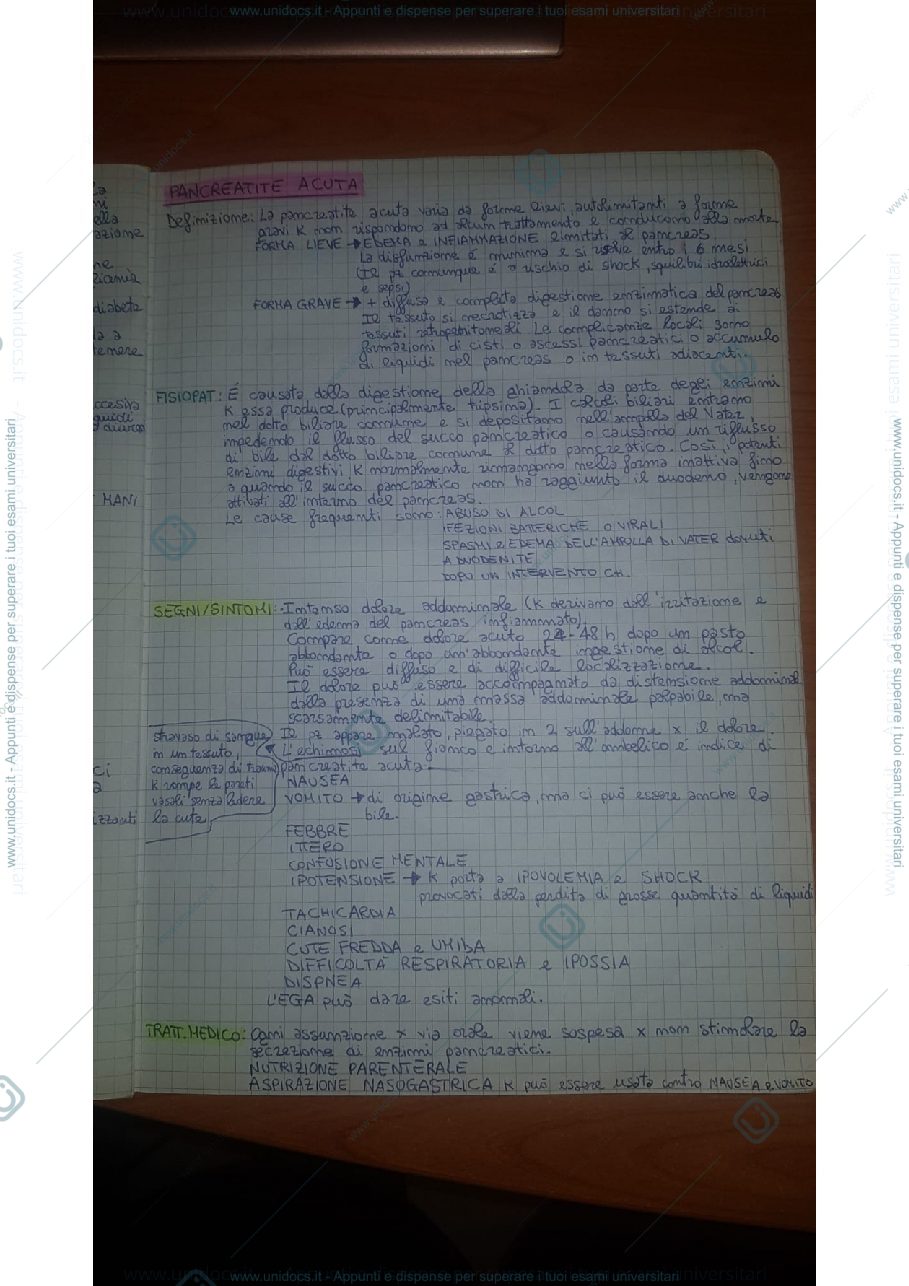 www.unidocs.it - Appunti e dispense per superare i tuoi esami universitari
PANCREATITE ACUTA
Definizione: La pancreatite acuta varia da forme lievi, autolimitanti a forme
gravi k non rispondono ad alcun trattamento e conducono alla morte
FORMA LIEVE → EDEMA e INFIAMMAZIONE limitati al pancreas
La disfunzione è minima e si risolve entro i 6 mesi
(Il pz comunque è a rischio di shock, squilibri idroelettrici
e sepsi)
FORMA GRAVE → + diffusa e completa digestione enzimatica del pancreas
Il tessuto si necrotizza e il danno si estende ai
tessuti retroperitoneali Le complicanze locali sono
formazioni di cisti o ascessi pancreatici o accumulo
di liquidi nel pancreas o in tessuti adiacenti.
FISIOPAT: È causata dalla digestione della ghiandola da parte degli enzimi
k essa produce (principalmente tripsina). I calcoli biliari entrano
nel dotto biliare comune e si depositano nell'ampolla del Vater,
impedendo il flusso del succo pancreatico o causando un riflusso
di bile dal dotto biliare comune al dotto pancreatico. Così, i potenti
enzimi digestivi k normalmente rimangono nella forma inattiva fino
a quando il succo pancreatico non ha raggiunto il duodeno, vengono
attivati all'interno del pancreas.
Le cause frequenti sono: ABUSO DI ALCOL
IFEZIONI BATTERICHE O VIRALI
SPASMI e EDEMA DELL'AMPOLLA DI VATER dovuti
A DUODENITE
DOPO UN INTERVENTO CH.
SEGNI/SINTOMI: - Intenso dolore addominale (k derivano dall'irritazione e
dall'edema del pancreas infiammato).
Compare come dolore acuto 24-48 h dopo un pasto
abbondante o dopo un'abbondante ingestione di alcol.
Può essere diffuso e di difficile localizzazione.
Il dolore può essere accompagnato da distensione addominale
dalla presenza di una massa addominale palpabile, ma
scarsamente delimitabile.
Il pz appare malato, piegato in 2 sull'addome x il dolore.
L'echimosi sul fianco e intorno all'ombelico è indice di
pancreatite acuta.
stravaso di sangue
in un tessuto,
conseguenza di traumi
k rompe le pareti
vasali senza ledere
la cute
NAUSEA
VOMITO → di origine gastrica, ma ci può essere anche la
bile.
FEBBRE
ITTERO
CONFUSIONE MENTALE
IPOTENSIONE → k porta a IPOVOLEMIA e SHOCK
provocati dalla perdita di grosse quantità di liquidi
TACHICARDIA
CIANOSI
CUTE FREDDA e UMIDA
DIFFICOLTÀ RESPIRATORIA e IPOSSIA
DISPNEA
L'EGA può dare esiti anomali.
TRATT. MEDICO: Ogni assunzione x via orale viene sospesa x non stimolare la
secrezione di enzimi pancreatici.
NUTRIZIONE PARENTERALE
ASPIRAZIONE NASOGASTRICA k può essere usata contro NAUSEA e VOMITO
www.unidocs.it - Appunti e dispense per superare i tuoi esami universitari
www.unidocs.it - Appunti e dispense per superare i tuoi esami universitari
www.unidocs.it - Appunti e dispense per superare i tuoi esami universitari